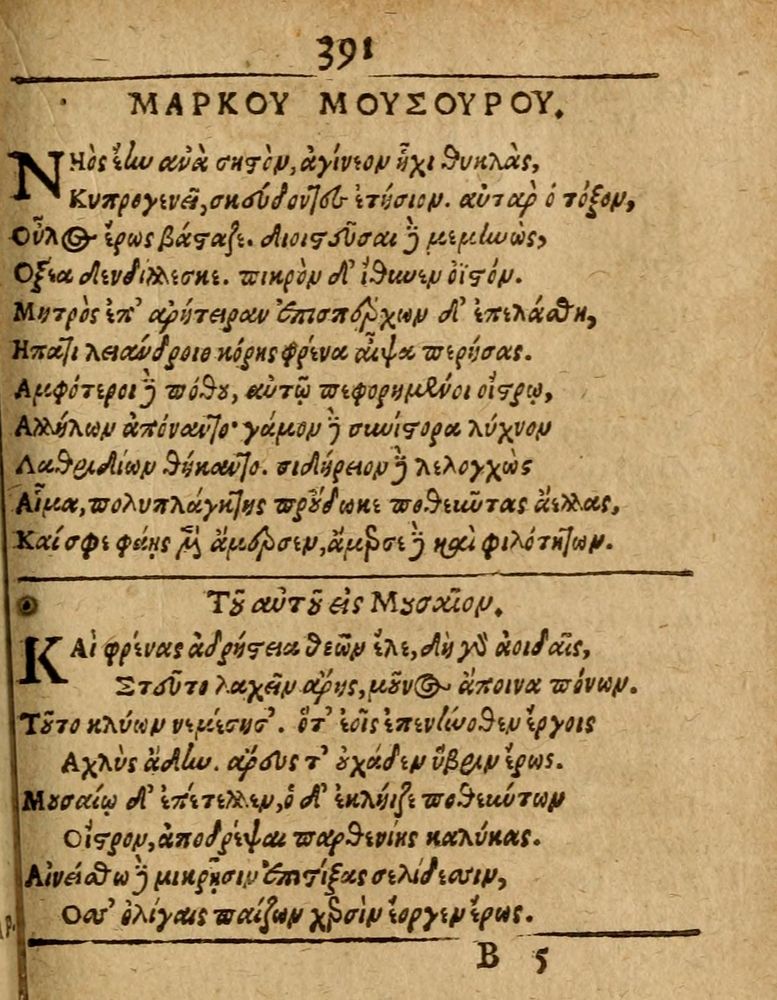 391
ΜΑΡΚΟΥ ΜΟΥΣΟΥΡΟΥ.
Νηὸς ἔην ἀνὰ σηστὸν, ἀγίνεον ἧχι θυηλὰς,
Κυπρογενεῖ, σπεύδοντες ἐτήσιον. αὐτὰρ ὁ τόξον,
Οὖλος ἔρως βάσταζε. διοιστεῦσαι δὲ μεμαὼς,
Οξέα δενδίλλεσκε. πικρὸν δ' ἴθυνεν ὀϊστόν.
Μητρὸς ἐπ' ἀρήτειραν ἐπισπέρχων δ' ἐπελάσθη,
Ηπατι λειάνδροιο κόρης φρένα αἶψα περήσας.
Αμφότεροι δὲ πόθου, αὐτῷ πεφορημένοι οἴστρῳ,
Αλλήλων ἀπόναντο· γάμον δὲ συνίστορα λύχνον
Λαθριδίων θήκαντο. σιδήρειον δὲ λελογχὼς
Αἷμα, πολυπλάγκτης προὔδωκε ποθεῦντας ἀέλλας,
Καί σφε φάης μὲν ἄμερσεν, ἄμερσε δὲ καὶ φιλότητων.
Τοῦ αὐτοῦ εἰς Μουσαῖον.
Καὶ φρένας ἀδρήστεια θεῶν ἕλε, δὴ γὰρ ἀοιδαῖς,
Στεῦτο λαχεῖν ἄρης, μοῦνος ἄποινα πόνων.
Τοῦτο κλύων νεμέσησ'. ὅτ' ἑοῖς ἐπενήνοθεν ἔργοις
Αχλὺς ἄδην. ἄρευς τ' οὐχάδεν ὕβριν ἔρως.
Μουσαίῳ δ' ἐπέτελλεν, ὁ δ' ἐκλήϊζε ποθεύντων
Οἶστρον, ἀποδρέψαι παρθενίης καλύκας.
Αἰνείσθω δὲ μικρῇσιν ἐπιστίξας σελίδεσσιν,
Οσσ' ὀλίγαις παίζων χερσὶν ἔοργεν ἔρως.
B 5